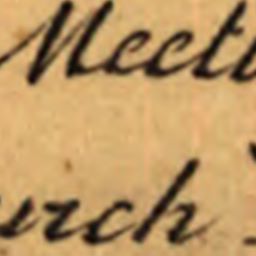 Meeti
urch